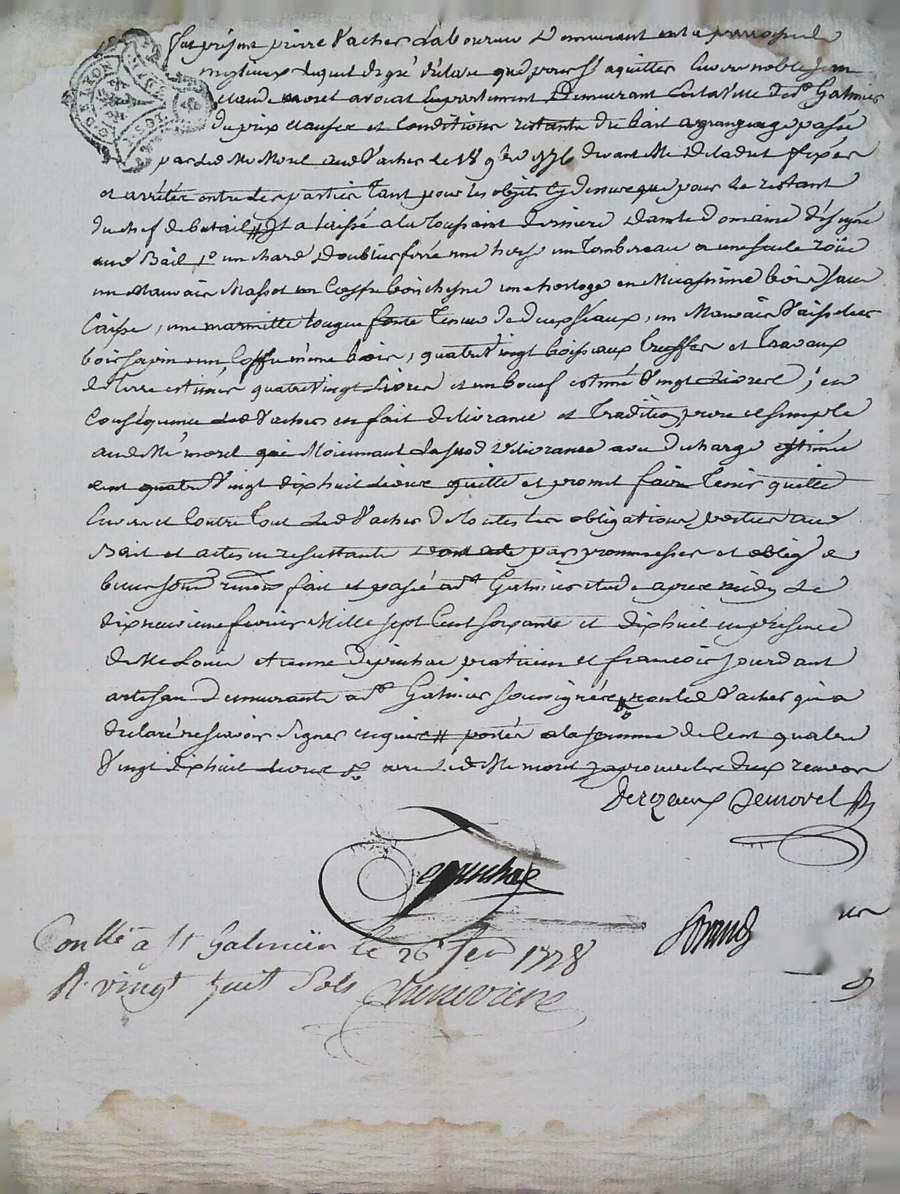 fut présent pierre Vacher Laboureur Demeurant
lequel de gré déclare que pour s'aquitter envers noble jean
claude morel avocat en parlement Demeurant en la Ville de St Galmier
du prix clauses et conditions restante du bail a grangeage passé
par Led Me Morel aud Vacher le 18 9bre 1776 devant Me
et arrétée entre Les parties tant pour les objets que pour le restant
du chef de betail # Il a laissé a la toussaint derniere Dans le Domaine désigné
aud Bail 1o un chard Doublier ferré une herse un tombereau a une seule roüe
un Mauvais un Coffre bois chesne une horloge en bois sans
Caisse, une marmitte tenue de deux séaux, un Mauvais Vaisselier
bois sapin un Coffre même bois, quatre Vingt boisseaux truffes et travaux
de terre estimés quatre Vingt Livres et un boeuf estimé Vingt Livres ; en
Conséquence Led Vacher en fait delivrance et tradition pure et simple
aud Me morel qui Moienant La sud delivrance avec decharge estimée
cent quatre Vingt dix huit Livres quitte et promet faire tenir quitte
Envers et Contre tout Led Vacher de toutes les obligations portées aud
Bail et actes en resultants Dont acte par prommesses et oblig de
biens soum renon fait et passé a St Galmier etude apres midy Le
dix neuvieme fevrier Mille sept Cent soixante et dix huit en présence
de Me Louis etienne praticien et francois jourdant
artisan Demeurant a St Galmier soussignés non led Vacher qui a
declaré ne savoir signer enquis # portés a la somme de Cent quatre
Vingt dix huit Livres avec Led Me morel approuvé les deux renvois
Demorel
Conllé à St Galmier le 26 fev 1778
R. vingt huit sols